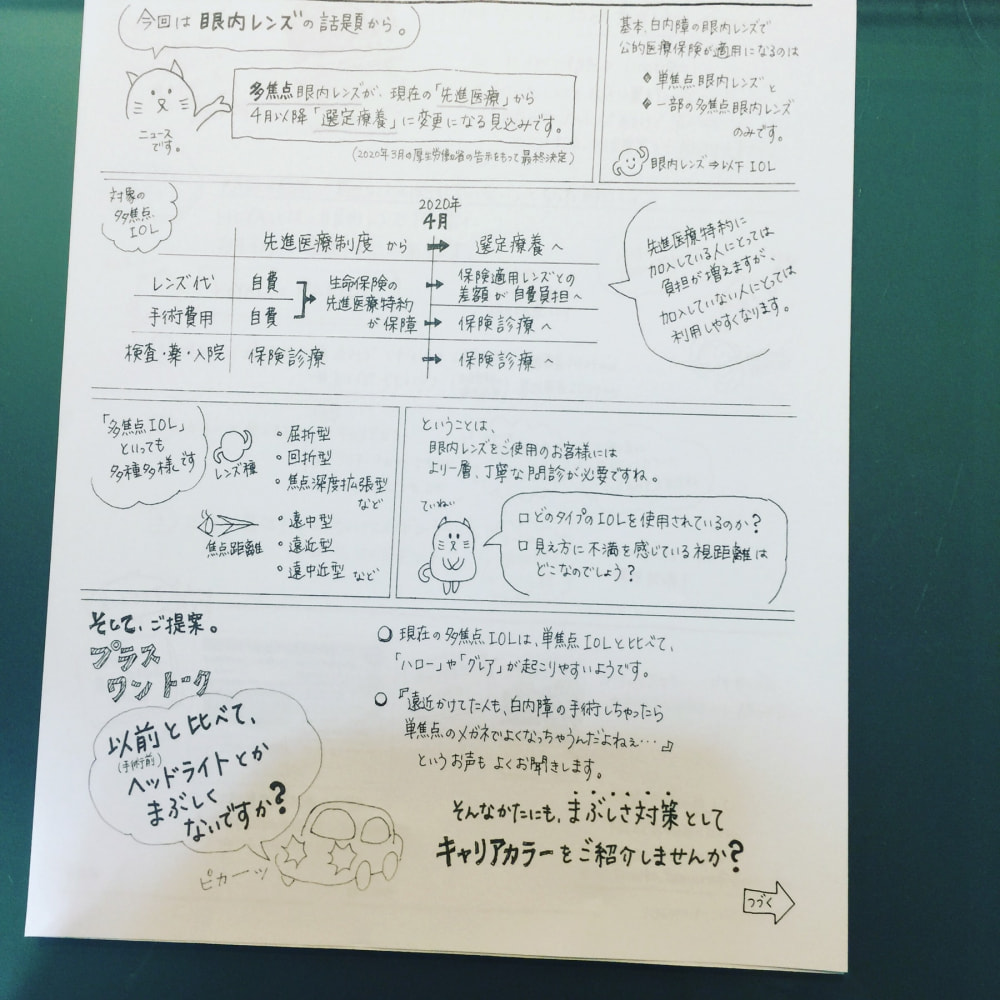 今回は眼内レンズの話題から。
ニュース
です。
多焦点眼内レンズが、現在の「先進医療」から
4月以降「選定療養」に変更になる見込みです。
(2020年3月の厚生労働省の告示をもって最終決定)
基本、白内障の眼内レンズで
公的医療保険が適用になるのは
単焦点眼内レンズと
一部の多焦点眼内レンズ
のみです。
眼内レンズ⇒以下IOL
対象の
多焦点
IOL
2020年
4月
先進医療制度 から ➡ 選定療養へ
レンズ代 自費
手術費用 自費
生命保険の
先進医療特約
が保障
➡ 保険適用レンズとの
差額が自費負担へ
➡ 保険診療へ
検査・薬・入院 保険診療 ➡ 保険診療へ
先進医療特約に
加入している人にとっては
負担が増えますが、
加入していない人にとっては
利用しやすくなります。
「多焦点IOL」
といっても
多種多様です
レンズ種
・屈折型
・回折型
・焦点深度拡張型
など
焦点距離
・遠中型
・遠近型
・遠中近型 など
ということは、
眼内レンズをご使用のお客様には
より一層、丁寧な問診が必要ですね。
ていねい
□どのタイプのIOLを使用されているのか?
□見え方に不満を感じている視距離は
どこなのでしょう?
そして、ご提案。
プラス
ワントーク
以前と比べて、
(手術前)
ヘッドライトとか
まぶしく
ないですか?
ピカーッ
○ 現在の多焦点IOLは、単焦点IOLと比べて、
「ハロー」や「グレア」が起こりやすいようです。
○ 『遠近かけてた人も、白内障の手術しちゃったら
単焦点のメガネでよくなっちゃうんだよねぇ…』
というお声もよくお聞きします。
そんなかたにも、まぶしさ対策として
キャリアカラーをご紹介しませんか?
つづく